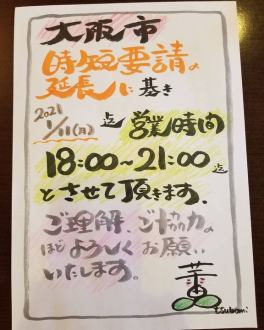 大阪市
時短要請の
延長に基き
2021
1/11(月)迄 営業時間
18:00~21:00迄
とさせて頂きます。
ご理解、ご協力の
ほどよろしくお願い
いたします。
蕾
tsubomi